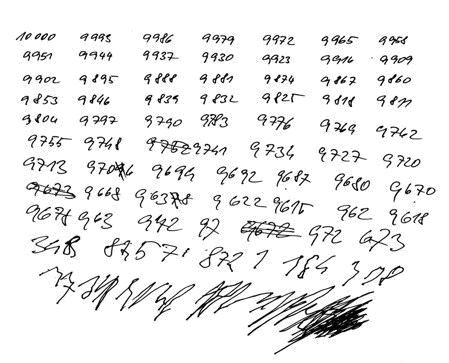 10000 9993 9986 9979 9972 9965 9958
9951 9944 9937 9930 9923 9916 9909
9902 9895 9888 9881 9874 9867 9860
9853 9846 9839 9832 9825 9818 9811
9804 9797 9790 9783 9776 9769 9762
9755 9748 9741 9734 9727 9720
9713 9694 9692 9687 9680 9670
9668 9622 9615 962 9618
9678 963 942 97 972 673
348 8757 872 1 184 308